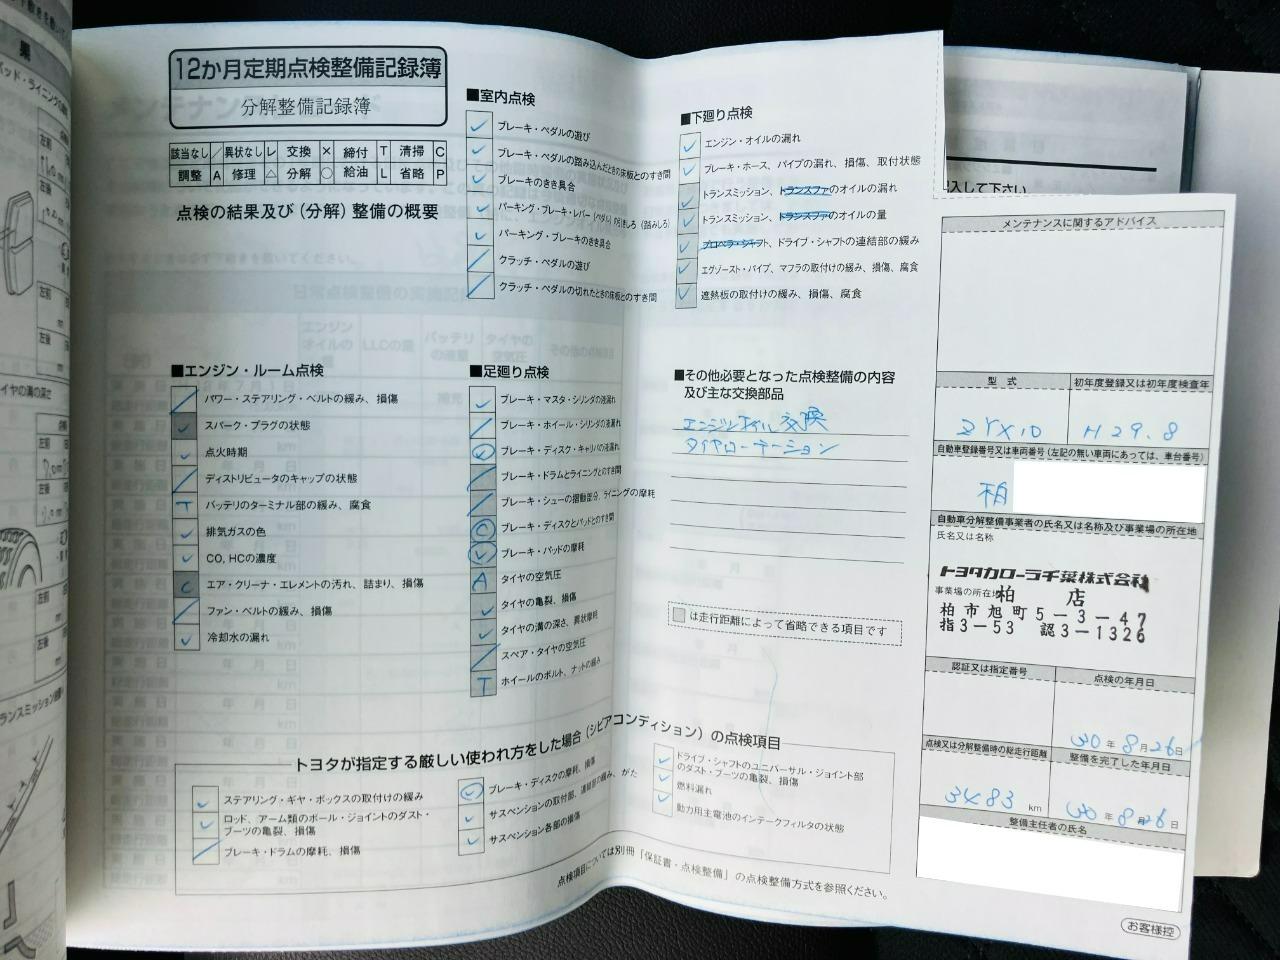 12か月定期点検整備記録簿
分解整備記録簿
該当なし / 異状なし レ 交換 × 締付 T 清掃 C
調整 A 修理 △ 分解 ○ 給油 L 省略 P
点検の結果及び(分解)整備の概要
■室内点検
ブレーキ・ペダルの遊び
ブレーキ・ペダルの踏み込んだときの床板とのすき間
ブレーキのきき具合
パーキング・ブレーキ・レバー(ペダル)の引きしろ(踏みしろ)
パーキング・ブレーキのきき具合
クラッチ・ペダルの遊び
クラッチ・ペダルの切れたときの床板とのすき間
■下廻り点検
エンジン・オイルの漏れ
ブレーキ・ホース、パイプの漏れ、損傷、取付状態
トランスミッション、トランスファのオイルの漏れ
トランスミッション、トランスファのオイルの量
プロペラ・シャフト、ドライブ・シャフトの連結部の緩み
エグゾースト・パイプ、マフラの取付けの緩み、損傷、腐食
遮熱板の取付けの緩み、損傷、腐食
■エンジン・ルーム点検
パワー・ステアリング・ベルトの緩み、損傷
スパーク・プラグの状態
点火時期
ディストリビュータのキャップの状態
T バッテリのターミナル部の緩み、腐食
排気ガスの色
CO, HCの濃度
C エア・クリーナ・エレメントの汚れ、詰まり、損傷
ファン・ベルトの緩み、損傷
冷却水の漏れ
■足廻り点検
ブレーキ・マスタ・シリンダの液漏れ
ブレーキ・ホイール・シリンダの液漏れ
ブレーキ・ディスク・キャリパの液漏れ
ブレーキ・ドラムとライニングとのすき間
ブレーキ・シューの摺動部分、ライニングの摩耗
C ブレーキ・ディスクとパッドとのすき間
ブレーキ・パッドの摩耗
A タイヤの空気圧
タイヤの亀裂、損傷
タイヤの溝の深さ、異状摩耗
スペア・タイヤの空気圧
T ホイールのボルト、ナットの緩み
■その他必要となった点検整備の内容
及び主な交換部品
エンジンオイル交換
タイヤローテーション
は走行距離によって省略できる項目です
トヨタが指定する厳しい使われ方をした場合(シビアコンディション)の点検項目
ステアリング・ギヤ・ボックスの取付けの緩み
ロッド、アーム類のボール・ジョイントのダスト・
ブーツの亀裂、損傷
ブレーキ・ドラムの摩耗、損傷
ブレーキ・ディスクの摩耗、損傷
サスペンションの取付部、連結部の緩み、がた
サスペンション各部の損傷
ドライブ・シャフトのユニバーサル・ジョイント部
のダスト・ブーツの亀裂、損傷
燃料漏れ
動力用主電池のインテークフィルタの状態
点検項目については別冊「保証書・点検整備」の点検整備方式を参照ください。
入して下さい
メンテナンスに関するアドバイス
型式
初年度登録又は初年度検査年
ZYX10
H29.8
自動車登録番号又は車両番号(左記の無い車両にあっては、車台番号)
柏
自動車分解整備事業者の氏名又は名称及び事業場の所在地
氏名又は名称
トヨタカローラ千葉株式会社
事業場の所在地
柏店
柏市旭町5-3-47
指3-53 認3-1326
認証又は指定番号
点検の年月日
30年8月26日
点検又は分解整備時の総走行距離
整備を完了した年月日
3483 km
30年8月26日
整備主任者の氏名
お客様控